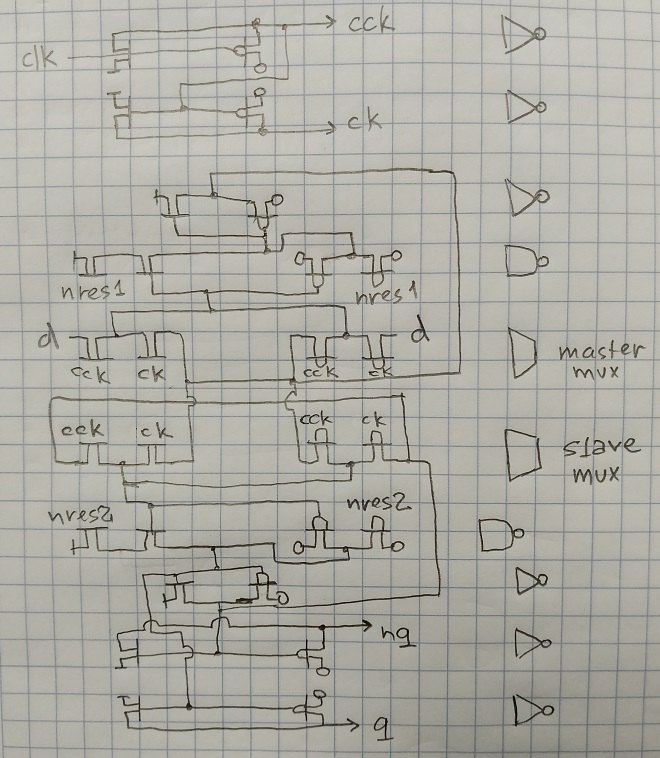 cck
clk
ck
nres1
nres1
d
d
cck
ck
cck
ck
master
mux
cck
ck
cck
ck
slave
mux
nres2
nres2
nq
q